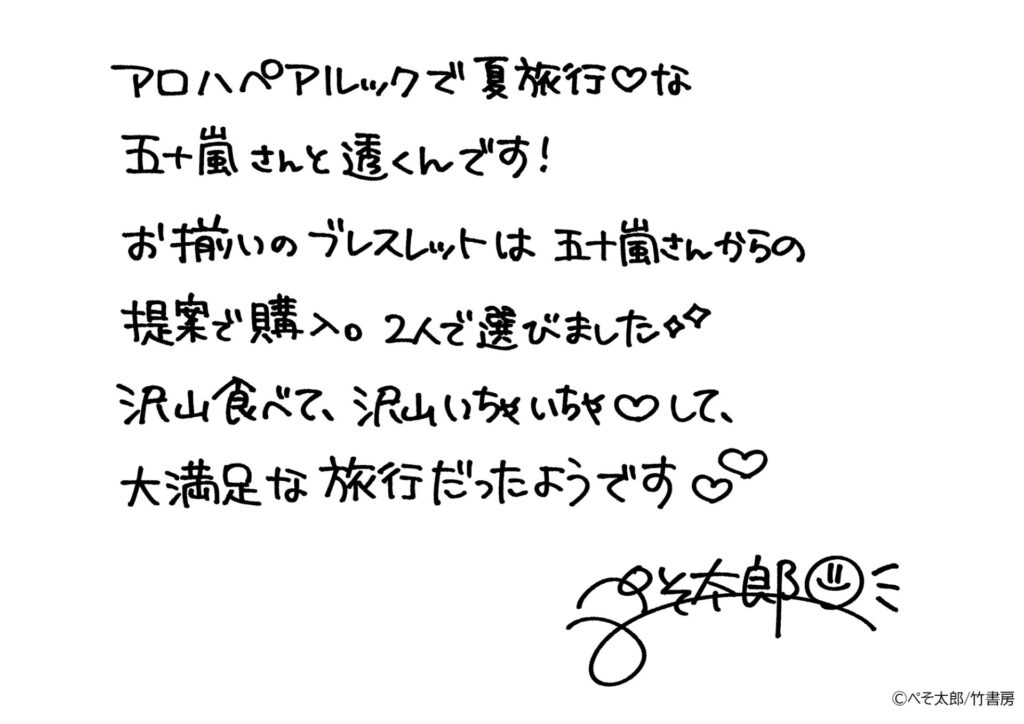 アロハペアルックで夏旅行♡な
五十嵐さんと透くんです！
お揃いのブレスレットは五十嵐さんからの
提案で購入。2人で選びました✧✧
沢山食べて、沢山いちゃいちゃ♡して、
大満足な旅行だったようです♡♡
ぺそ太郎
©ぺそ太郎/竹書房